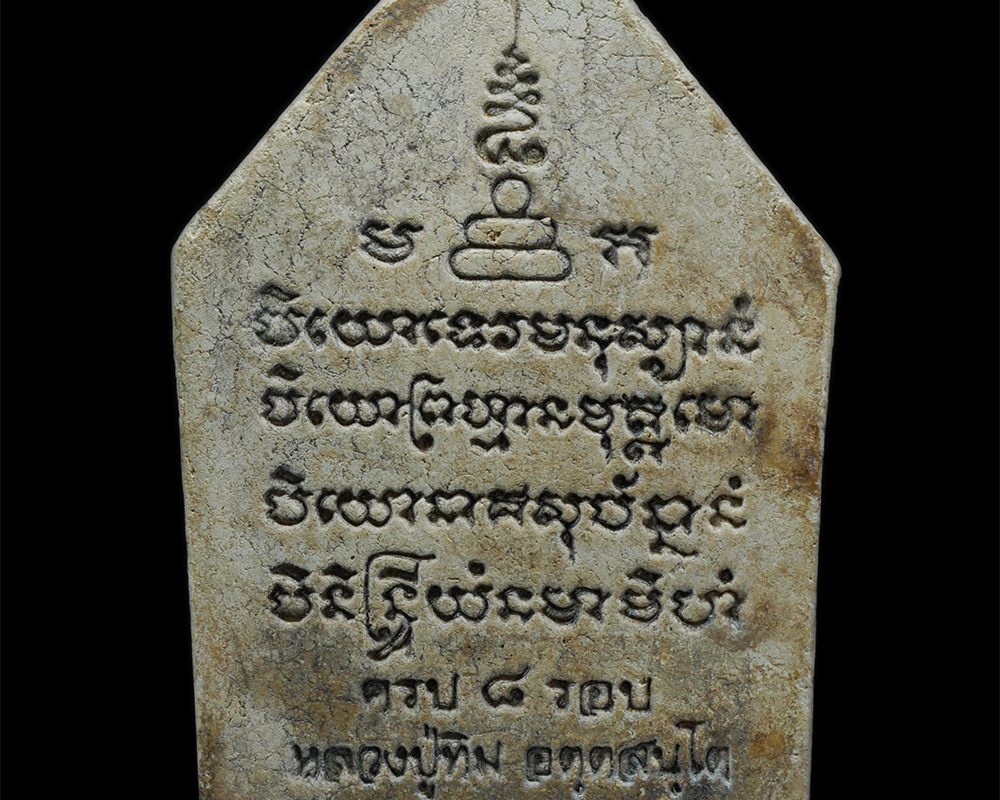 ម
បិយោទេវមនុស្សានំ
បិយោព្រហ្មានមុត្តមោ
បិយោនាគសុបណ្ណានំ
បិនិន្ទ្រិយំនមាមិហំ
ครบ ๘ รอบ
หลวงปู่ทิม อตฺตสนฺโต